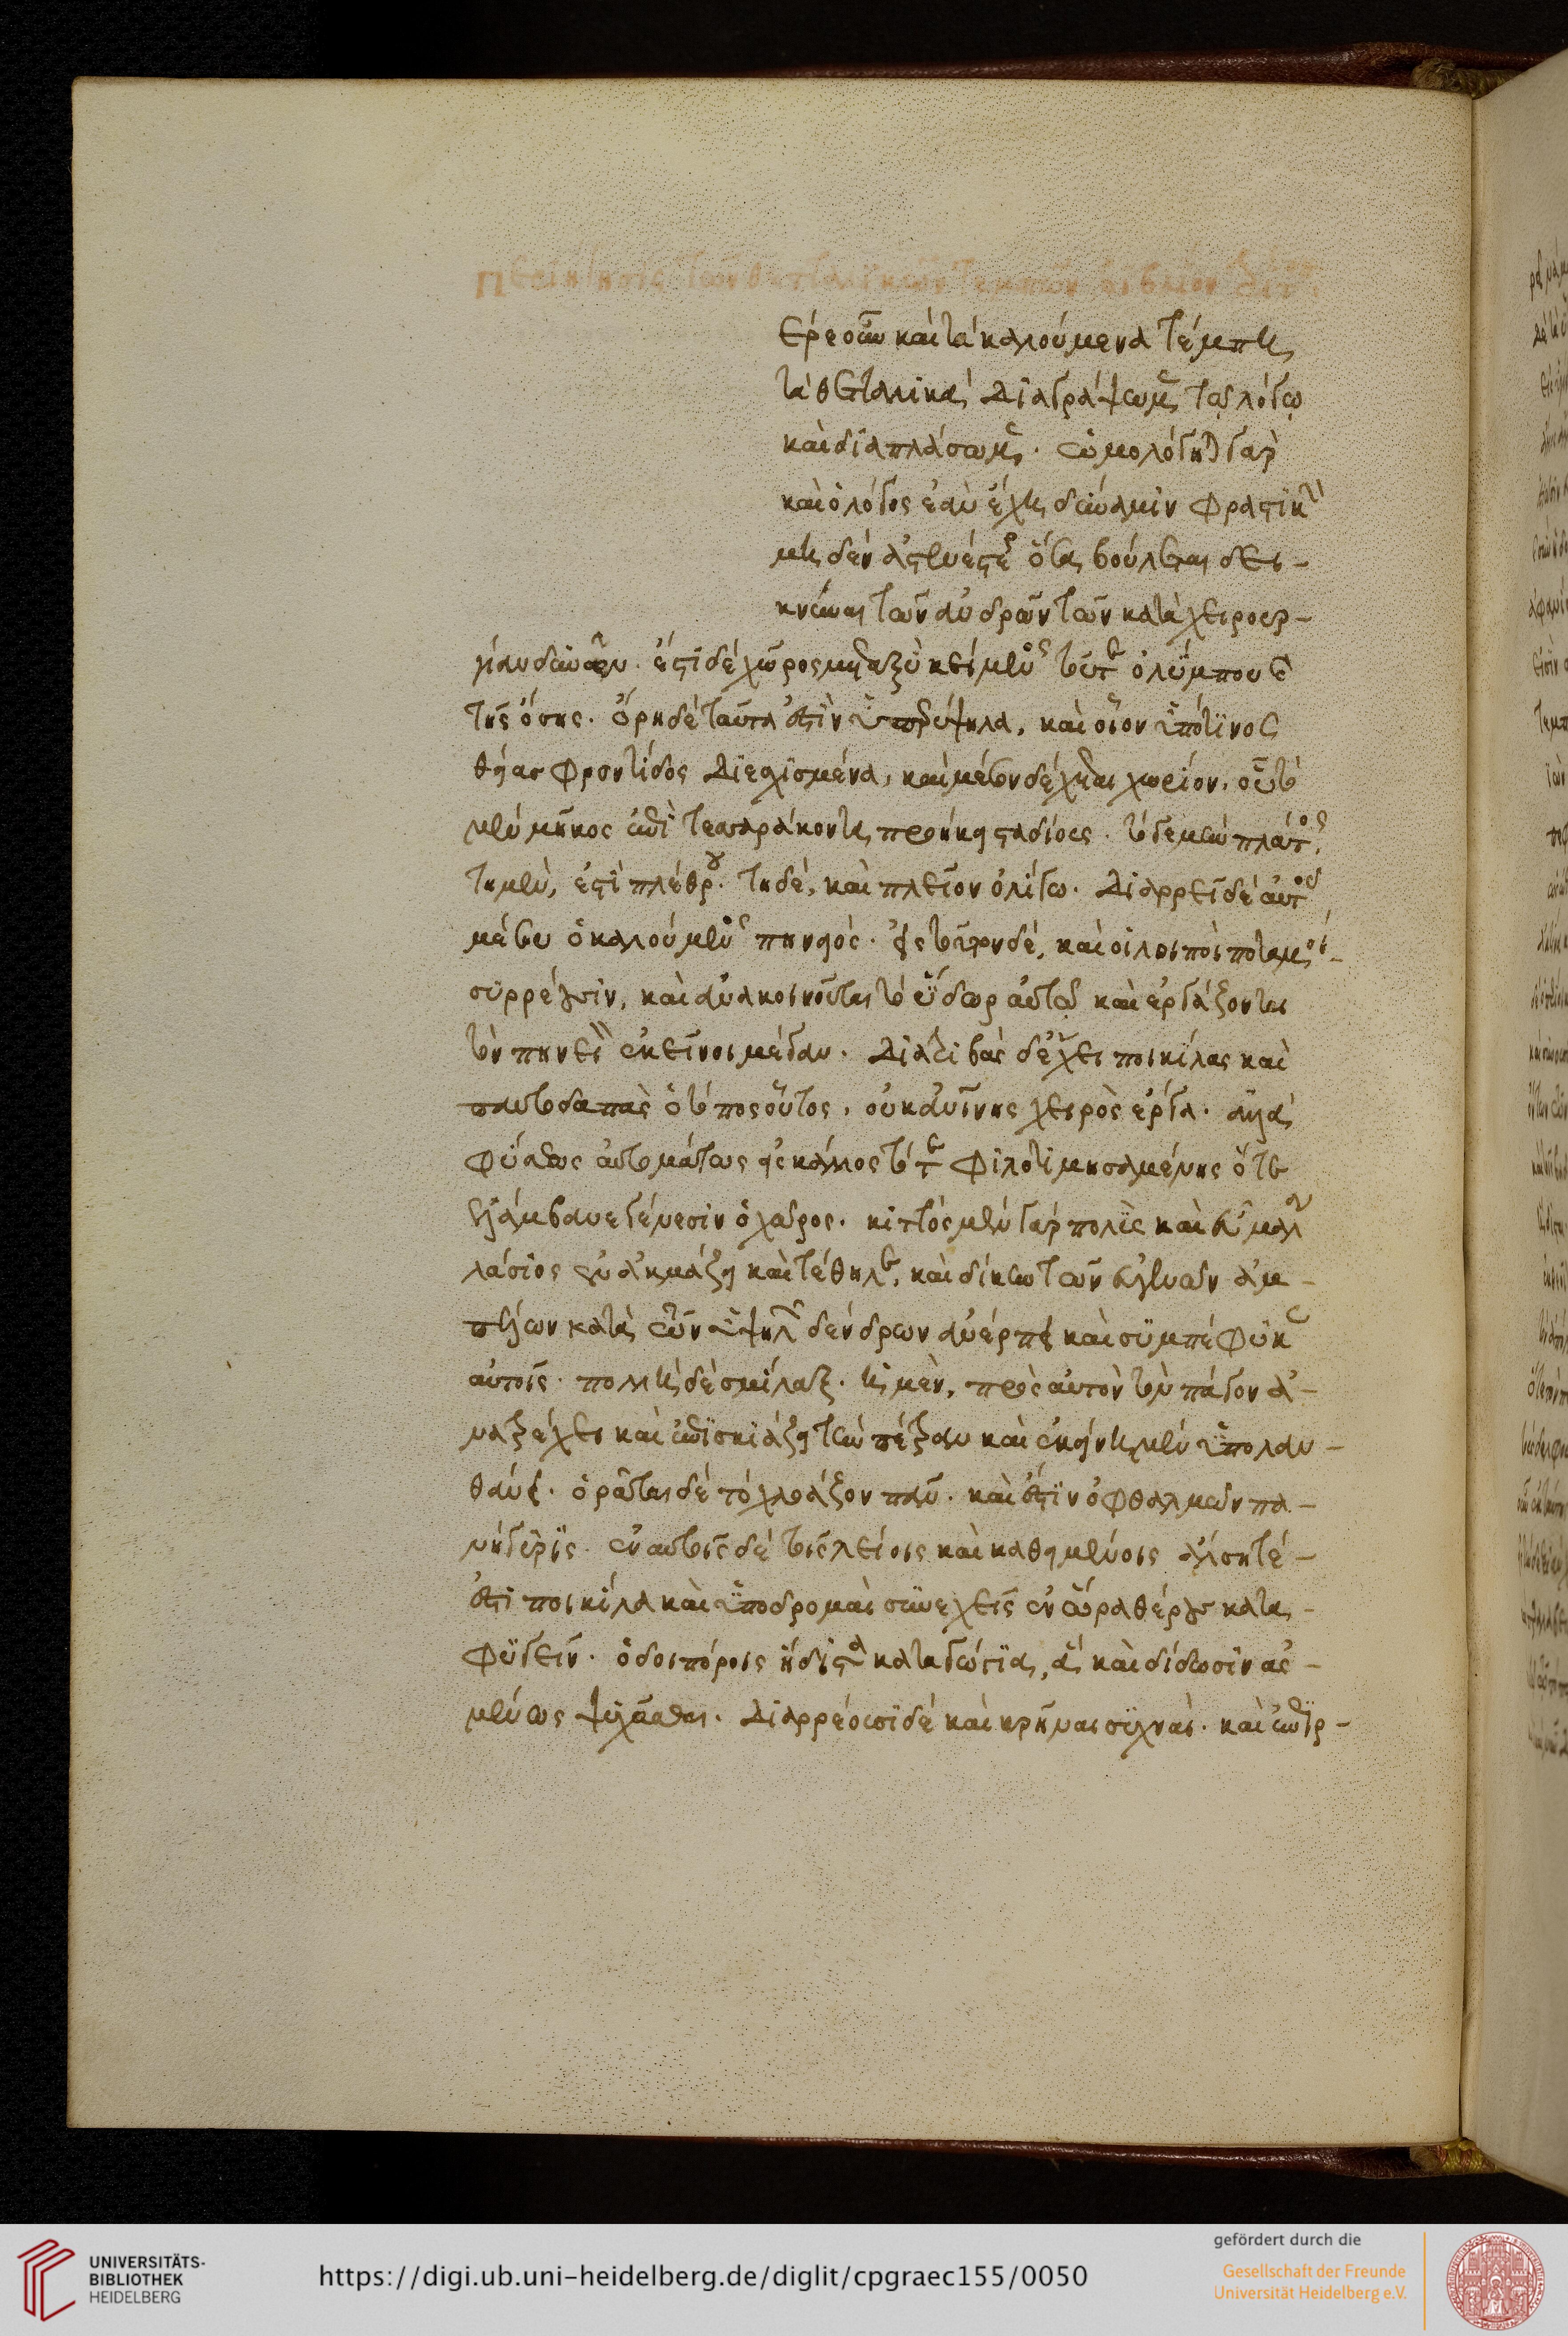 έρε οὖν καὶ τὰ καλούμενα τέμπη
τὰ θετταλικὰ διαγράψωμεν τῷ λόγῳ
καὶ διαπλάσωμεν. ὡμολόγηται γὰρ
καὶ ὁ λόγος ἐὰν ἔχῃ δύναμιν φραστικὴν
μηδὲν ἀσθενέστερον ὅσα βούλεται δει-
κνύναι τῶν ἀνδρῶν τῶν κατὰ χειρουρ-
γίαν δεινῶν. ἔστι δὲ χῶρος μεταξὺ κείμενος τοῦ τε ὀλύμπου καὶ
τῆς ὄσης. ὄρη δὲ ταῦτα ἐστὶν ὑπερύψηλα, καὶ οἷον ὑπό τινος
θείας φροντίδος διεσχισμένα, καὶ μέσον δέχεται χωρίον. οὗ τὸ
μὲν μῆκος ἐπὶ τεσσαράκοντα διήκει σταδίους. τό γε μὴν πλάτος,
τῇ μὲν, ἐστὶ πλέθρου. τῇ δὲ, καὶ πλεῖον ὀλίγω. διαρρεῖ δὲ αὐτοῦ
μέσου ὁ καλούμενος πηνειός. ἐς τοῦτον δὲ, καὶ οἱ λοιποὶ ποταμοὶ
συρρέουσιν, καὶ ἀνακοινοῦνται τὸ ὕδωρ αὐτῷ καὶ ἐργάζονται
τὸν πηνειὸν ἐκεῖνοι μέγαν. διατριβὰς δ' ἔχει ποικίλας καὶ
παντοδαπὰς ὁ τόπος οὗτος. οὐκ ἀνθρωπίνης χειρὸς ἔργα. ἀλλὰ
φύσεως αὐτομάτως εἰς κάλλος τότε φιλοτιμησαμένης ὅτε
ἐλάμβανε γένεσιν ὁ χῶρος. κιττὸς μὲν γὰρ πολὺς καὶ εὖ μάλα
λάσιος ἐνακμάζει καὶ τέθηλε, καὶ δίκην τῶν εὐγενῶν ἀμ-
πέλων κατὰ τῶν ὑψηλῶν δένδρων ἀνέρπει καὶ συμπέφυκεν
αὐτοῖς. πολλὴ δὲ σμίλαξ. ἡ μὲν, πρὸς αὐτὸν τὸν πάγον ἀ-
νατρέχει καὶ ἐπισκιάζει τὴν πέτραν καὶ ἐκείνη μὲν ὑπολαν-
θάνει. ὁρᾶται δὲ τὸ χλοάζον πᾶν. καὶ ἔστιν ὀφθαλμῶν πα-
νήγυρις. ἐν αὐτοῖς δὲ τοῖς λείοις καὶ καθημένοις ἄλση τέ
ἐστι ποικίλα καὶ ὑποδρομαὶ συνεχεῖς ἐν ὥρα θέρους κατα-
φυγεῖν. ὁδοιπόροις ἥδιστα καταγώγια, ἃ καὶ δίδωσιν ἀσ-
μένως ψυχᾶσθαι. διαρρέουσι δὲ καὶ κρῆναι συχναί. καὶ ἐπιρ-
UNIVERSITÄTS-
BIBLIOTHEK
HEIDELBERG
https://digi.ub.uni-heidelberg.de/diglit/cpgraec155/0050
gefördert durch die
Gesellschaft der Freunde
Universität Heidelberg e.V.